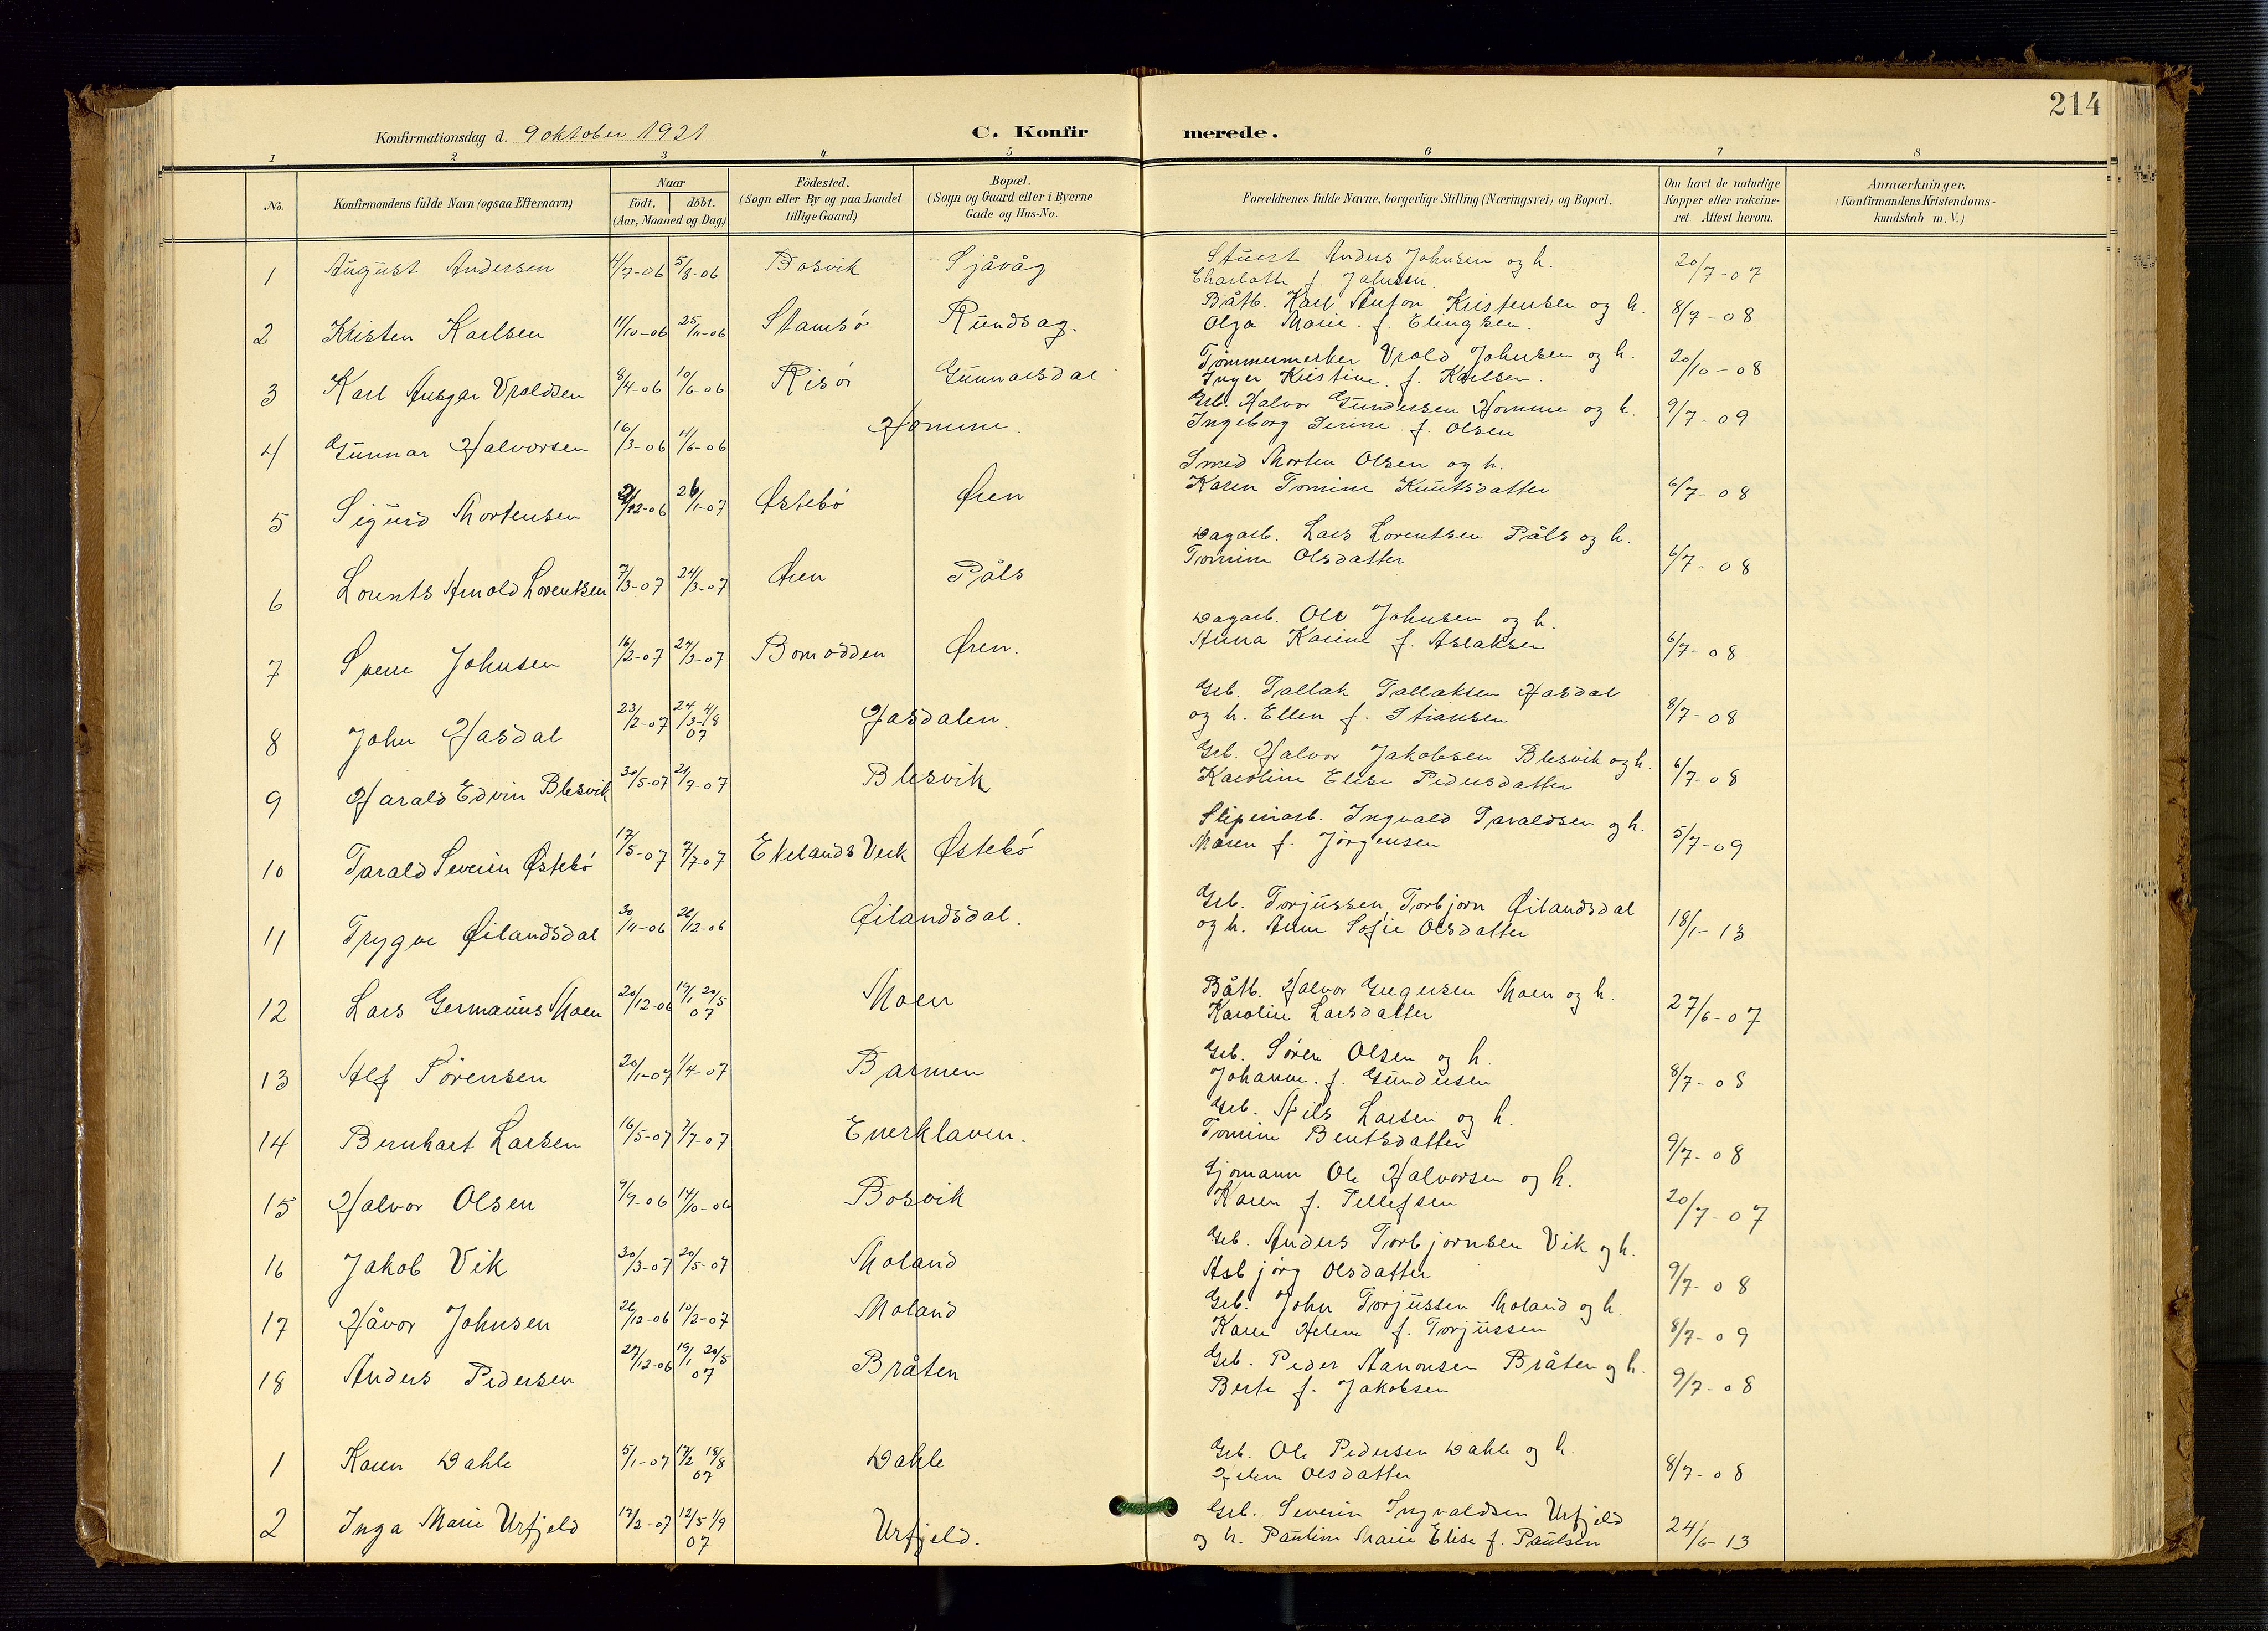 214
Konfirmationsdag d. 9 oktober 1921
C. Konfirmerede.
1 2 3 4. 5 6 7 8
No. Konfirmandens fulde Navn (ogsaa Efternavn) Naar födt. döbt. (Aar, Maaned og Dag) Födested. (Sogn eller By og paa Landet tillige Gaard) Bopæl. (Sogn og Gaard eller i Byerne Gade og Hus-No. Forældrenes fulde Navne, borgerlige Stilling (Næringsvei) og Bopæl. Om havt de naturlige Kopper eller vakcineret. Attest herom. Anmærkninger, (Konfirmandens Kristendomskundskab m. V.)
1 August Andersen 4/7-06 5/8-06 Bosvik Sjåvåg Stuert Anders Johnsen og h. 20/7-07
Charlotte f. Johnsen.
2 Kristen Karlsen 11/10-06 25/11-06 Stamsö Rundsag. Båtb. Karl Anton Kristensen og h. 8/7-08
Olga Marie. f. Elingsen.
3 Karl Ansgar Vroldsen 8/4-06 10/6-06 Risör Gunnarsdal Tömmermerker Vrold Johnsen og h. 20/10-08
Inger Kristine. f. Karlsen.
4 Gunnar Halvorsen 16/3-06 4/6-06 Homme. Grb. Halvor Gundersen Homme og h. 9/7-09
Ingeborg Serine. f. Olsen
5 Sigurd Mortensen /12-06 26/1-07 Østebö Øren Smed Morten Olsen og h. 6/7-08
Karen Tomine Knutsdatter
6 Lorents Arnold Lorentsen 7/3-07 24/3-07 Øren Påls Dagarb. Lars Lorentsen Påls og h. 6/7-08
Tomine Olsdatter
7 Svein Johnsen 16/2-07 24/3-07 Bomodden Øren. Dagarb. Ole Johnsen og h. 6/7-08
Anna Karine f. Aslaksen
8 John Hasdal 23/2-07 24/3-4/8 07 Hasdalen. Grb. Tallak Tallaksen Hasdal 8/7-08
og h. Ellen f. Stiansen
9 Harald Edvin Blesvik 30/5-07 21/7-07 Blesvik Grb. Halvor Jakobsen Blesvik og h. 6/7-08
Karoline Elise Pedersdatter
10 Tarald Severin Østebö 17/5-07 7/7-07 Ekelands Verk Østebö Sliperiarb. Ingvald Taraldsen og h. 5/7-09
Maren f. Jörgensen
11 Trygve Øilandsdal 30/11-06 26/12-06 Øilandsdal. Grb. Torjussen, Torbjorn Øilandsdal 18/1-13
og h. Anne Sofie Olsdatter
12 Lars Germanius Moen 20/12-06 19/1 20/5 07 Moen Båtb. Halvor Gregersen Moen og h. 27/6-07
Karoline Larsdatter
13 Alf Sörensen 20/1-07 1/4-07 Barmen Grb. Sören Olsen og h. 8/7-08
Johanne. f. Gundersen
14 Bernhart Larsen 16/5-07 7/7-07 Enerklaven. Grb. Nils Larsen og h. 9/7-08
Tomine Bentsdatter
15 Halvor Olsen 9/9-06 14/10-06 Bosvik Sjömann Ole Halvorsen og h. 20/7-07
Karen f. Tellefsen
16 Jakob Vik 30/3-07 20/5-07 Moland Grb. Anders Torbjornsen Vik og h. 9/7-08
Asbjörg Olsdatter
17 Håvor Johnsen 26/12-06 10/2-07 Moland Grb. John Torjussen Moland og h. 8/7-09
Karen Helene f. Torjussen
18 Anders Pedersen 27/12-06 19/1 20/5 07 Bråten Grb. Peder Aanonsen Bråten og h. 9/7-08
Berte f. Jakobsen
1 Karen Dahle 5/1-07 17/2 18/8 07 Dahle Grb. Ole Pedersen Dahle og h. 8/7-08
Helene Olsdatter
2 Inga Marie Urfjeld 17/2-07 12/5 1/9 07 Urfjeld. Grb. Severin Ingvaldsen Urfjeld 24/6-13
og h. Pauline Marie Elise f. Paulsen